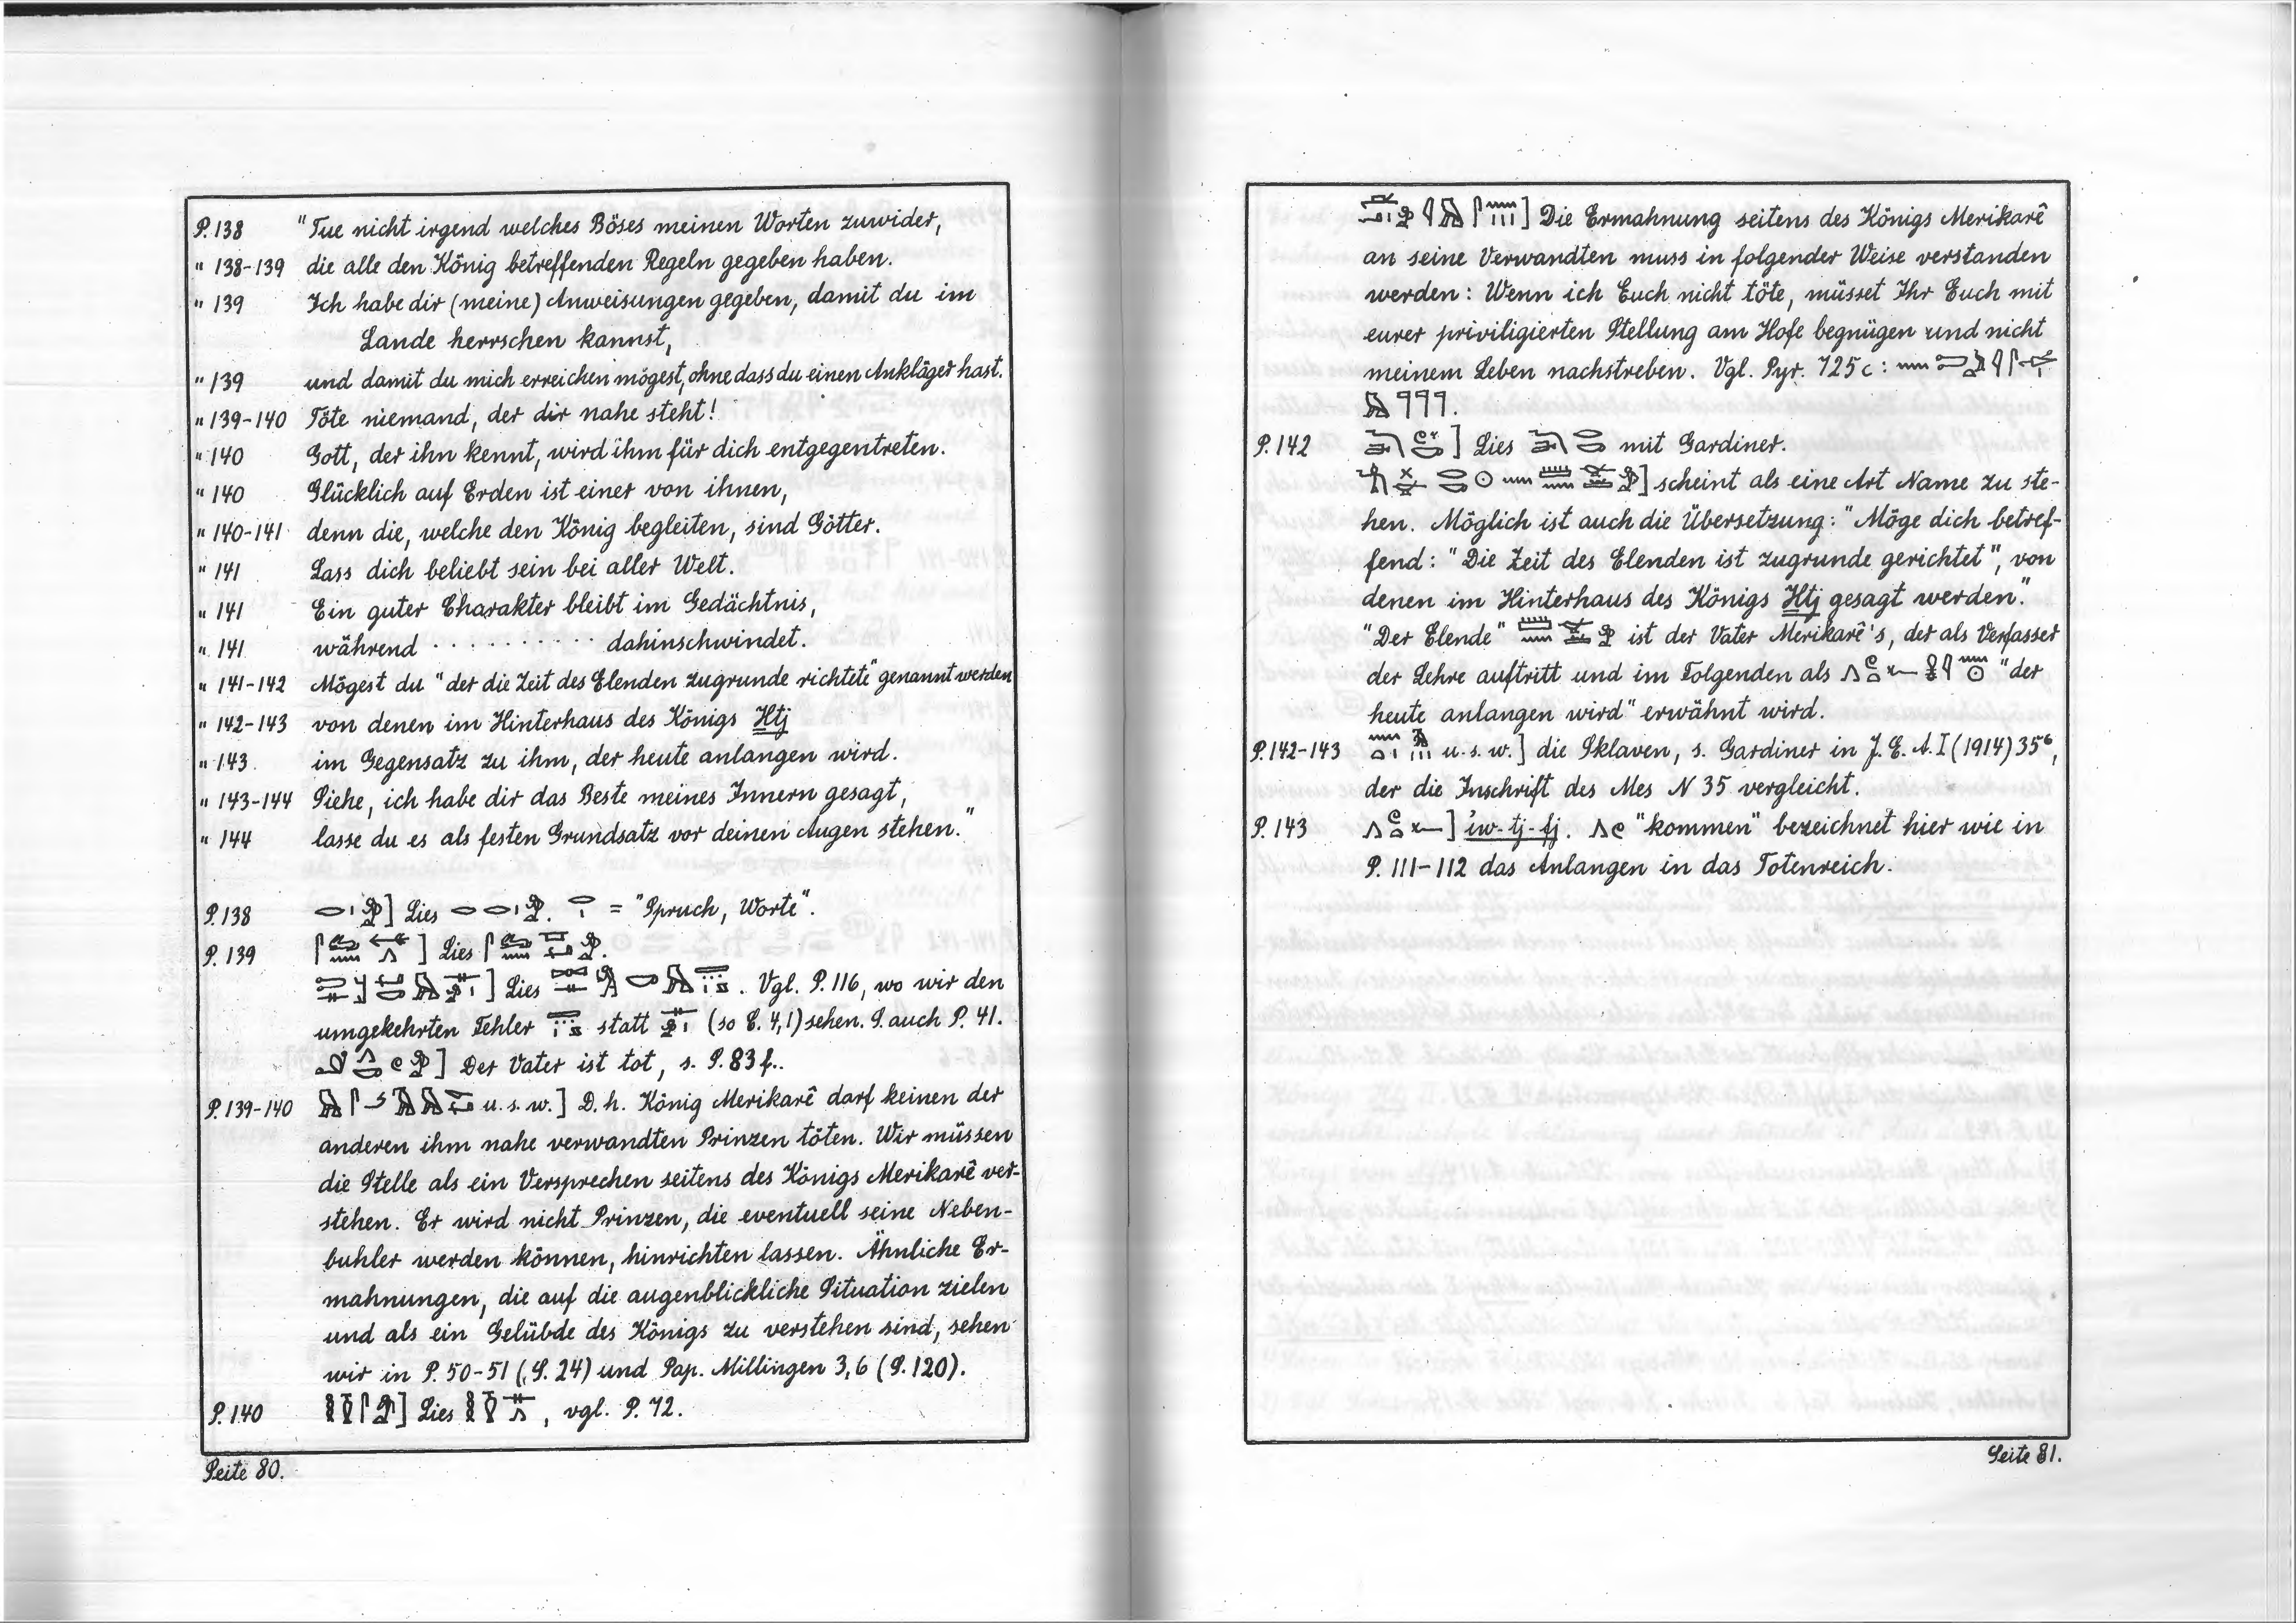 P. 138 "Tue nicht irgend welches Böses meinen Worten zuwider,
" 138-139 die alle den König betreffenden Regeln gegeben haben.
" 139 Ich habe dir (meine) Anweisungen gegeben, damit du im
Lande herrschen kannst,
" 139 und damit du mich erreichen mögest, ohne dass du einen Ankläger hast.
" 139-140 Töte niemand, der dir nahe steht!
" 140 Gott, der ihn kennt, wird ihm für dich entgegentreten.
" 140 Glücklich auf Erden ist einer von ihnen,
" 140-141 denn die, welche den König begleiten, sind Götter.
" 141 Lass dich beliebt sein bei aller Welt.
" 141 Ein guter Charakter bleibt im Gedächtnis,
" 141 während . . . . . . . . . . dahinschwindet.
" 141-142 Mögest du "der die Zeit des Elenden zugrunde richtete" genannt werden
" 142-143 von denen im Hinterhaus des Königs Ḫtj
" 143 im Gegensatz zu ihm, der heute anlangen wird.
" 143-144 Siehe, ich habe dir das Beste meines Innern gesagt,
" 144 lasse du es als festen Grundsatz vor deinen Augen stehen."
P. 138 ] Lies . = "Spruch, Worte".
P. 139 ] Lies .
] Lies . Vgl. P. 116, wo wir den
umgekehrten Fehler statt (so C. 4,1) sehen. S. auch P. 41.
] Der Vater ist tot, s. S. 83 f..
P. 139-140 u. s. w.] D. h. König Merikarê darf keinen der
anderen ihm nahe verwandten Prinzen töten. Wir müssen
die Stelle als ein Versprechen seitens des Königs Merikarê ver-
stehen. Er wird nicht Prinzen, die eventuell seine Neben-
buhler werden können, hinrichten lassen. Ähnliche Er-
mahnungen, die auf die augenblickliche Situation zielen
und als ein Gelübde des Königs zu verstehen sind, sehen
wir in P. 50-51 (S. 24) und Pap. Millingen 3,6 (S. 120).
P. 140 ] Lies , vgl. P. 72.
Seite 80.
] Die Ermahnung seitens des Königs Merikarê
an seine Verwandten muss in folgender Weise verstanden
werden: Wenn ich Euch nicht töte, müsset Ihr Euch mit
eurer priviligierten Stellung am Hofe begnügen und nicht
meinem Leben nachstreben. Vgl. Pyr. 725 c :
.
P. 142 ] Lies mit Gardiner.
] scheint als eine Art Name zu ste-
hen. Möglich ist auch die Übersetzung: "Möge dich betref-
fend: "Die Zeit des Elenden ist zugrunde gerichtet", von
denen im Hinterhaus des Königs Ḫtj gesagt werden."
"Der Elende" ist der Vater Merikarê's, der als Verfasser
der Lehre auftritt und im Folgenden als "der
heute anlangen wird" erwähnt wird.
P. 142-143 u. s. w.] die Sklaven, s. Gardiner in J. E. A. I (1914) 35⁶,
der die Inschrift des Mes N 35 vergleicht.
P. 143 ] ỉw-tj-fj. "kommen" bezeichnet hier wie in
P. 111-112 das Anlangen in das Totenreich.
Seite 81.